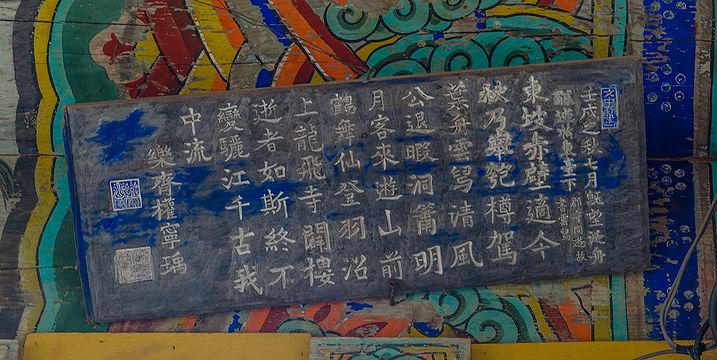 壬戌之秋七月旣望泛舟
東臺下
東坡赤壁適今
秋乃擧匏樽駕
葉舟清風
公退暇洞簫明
月客來遊山前
鶴舞仙登羽
上龍飛寺開樓
逝者如斯終不
變驪江千古我
中流
樂齋權寧瑀